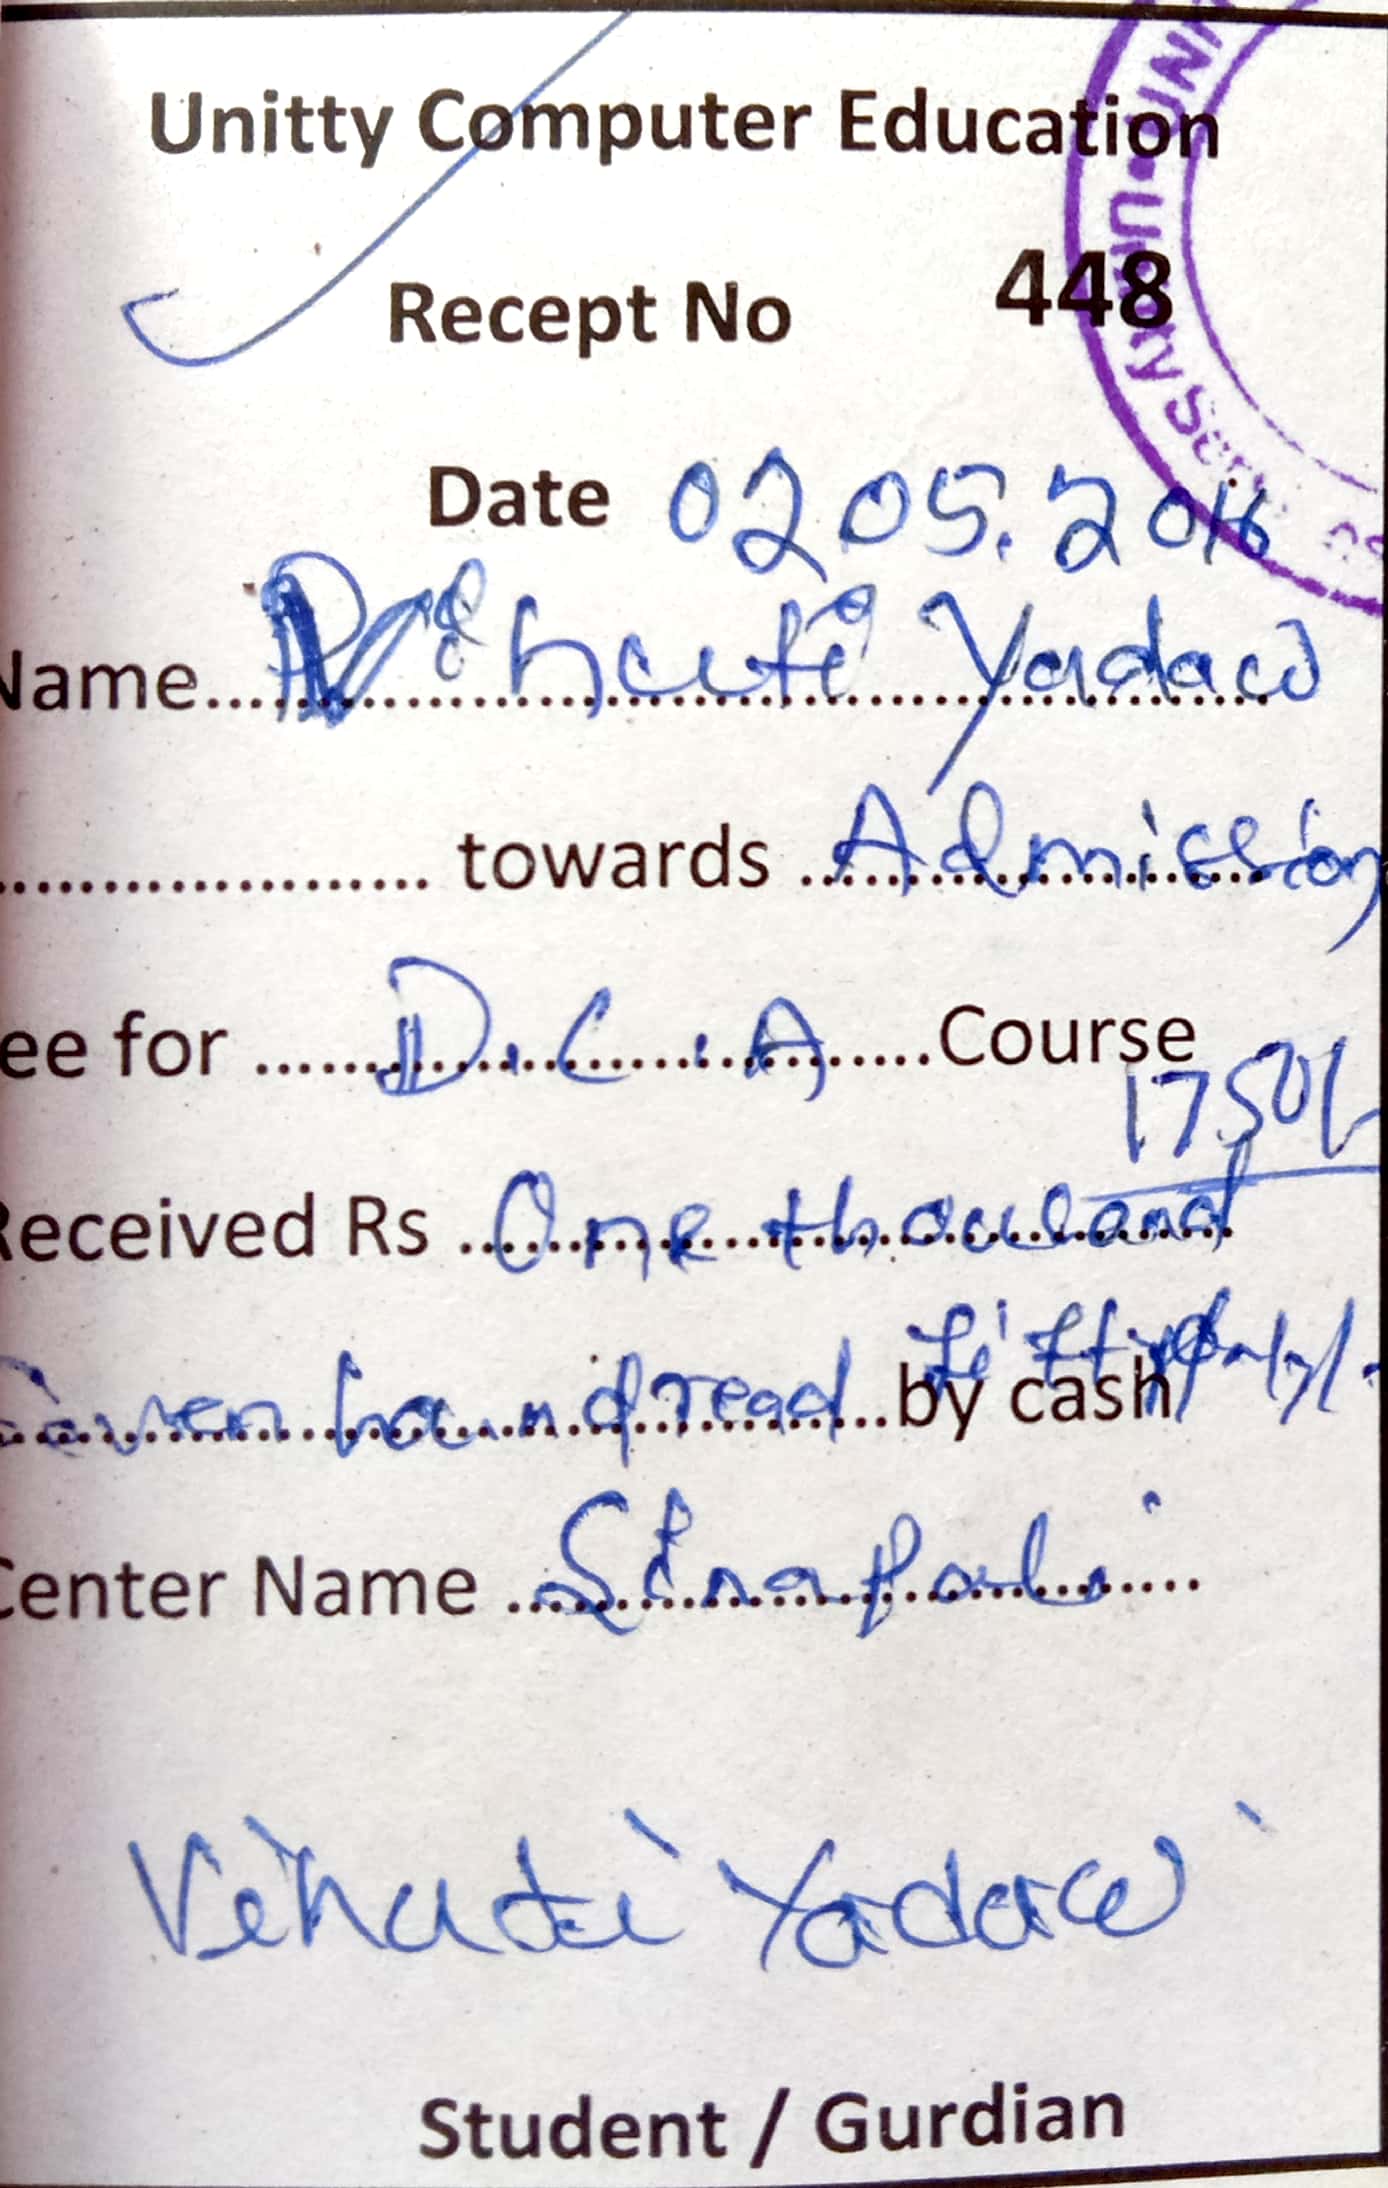 Unitty Computer Education
Recept No 448
Date 02 05.2016
Name................ Yadaw
.................... towards ..Admission
ee for ....D.C.A.....Course
1750/-
Received Rs ..One thousand
Seven houndread fifty only/-
..by cash
Center Name ..Sinapali....
Vihuti Yadaw
Student / Gurdian